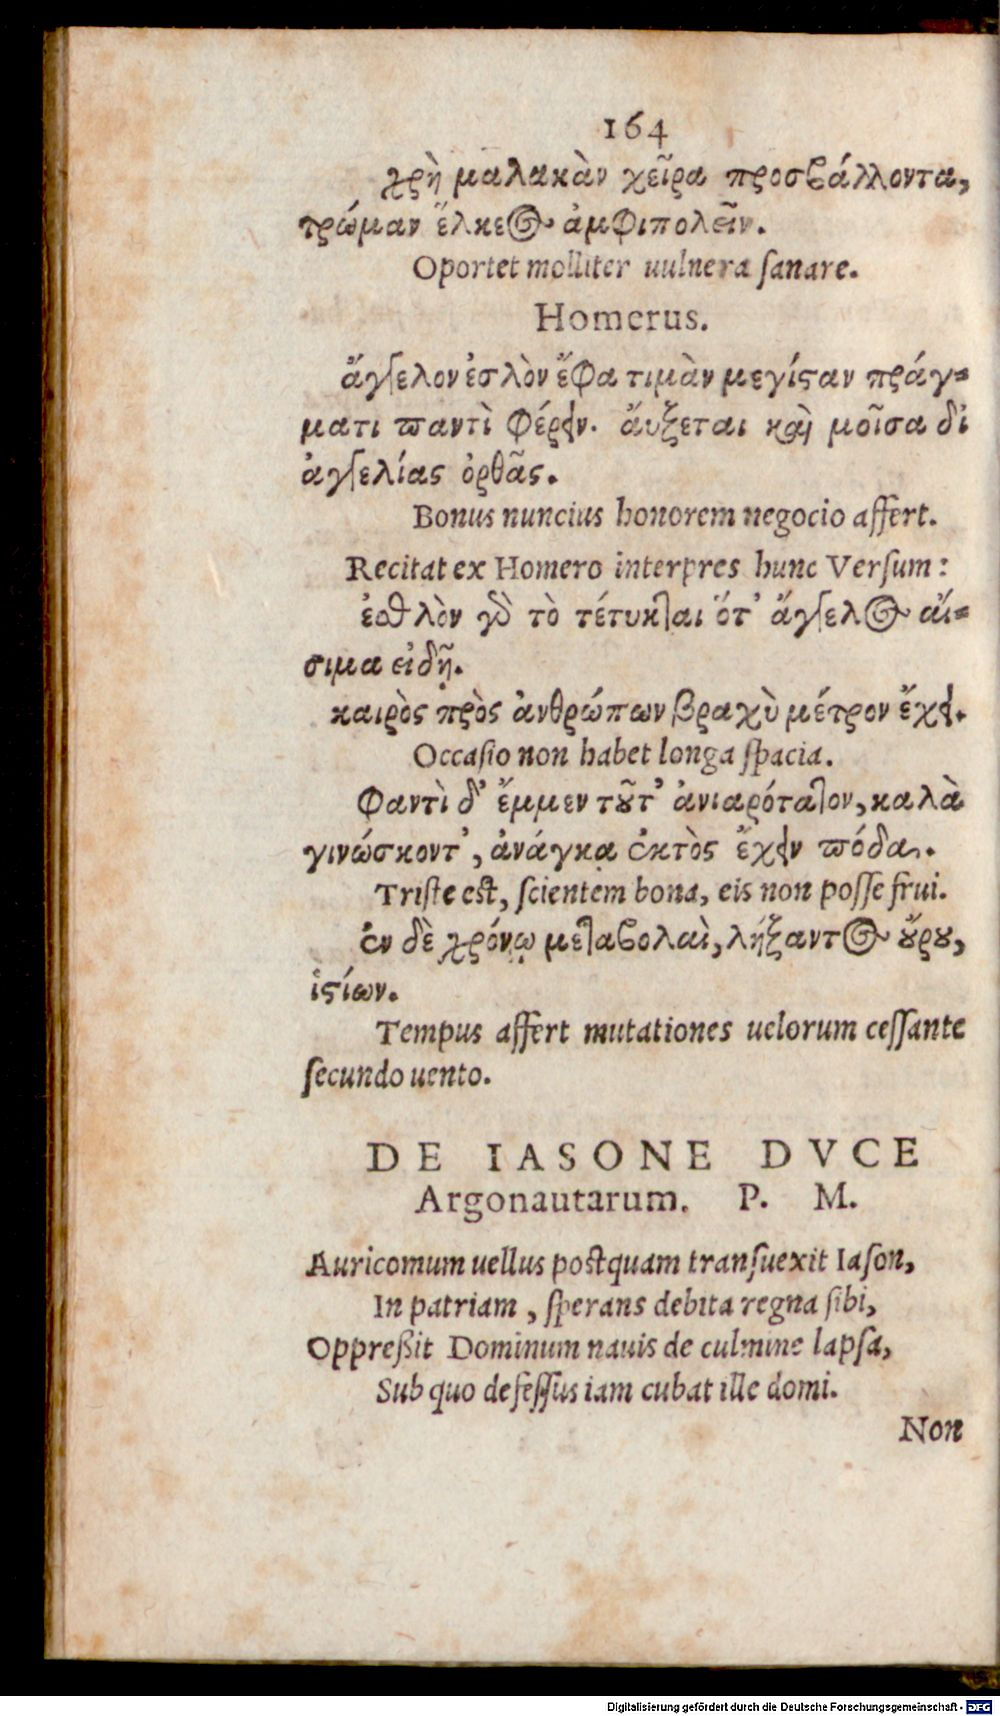 164
χρὴ μαλακὰν χεῖρα προσβάλλοντα,
τρώμαν ἕλκεος ἀμφιπολεῖν.
Oportet molliter uulnera ſanare.
Homerus.
ἄγγελον ἐσλὸν ἔφα τιμὰν μεγίσταν πράγ-
ματι παντὶ φέρειν. ἄυξεται καὶ μοῖσα δἰ
ἀγγελίας ὀρθᾶς.
Bonus nuncius honorem negocio affert.
Recitat ex Homero interpres hunc Verſum:
ἐσθλὸν γὰρ τὸ τέτυκται ὅτ' ἄγγελος αἴ-
σιμα εἰδῇ.
καιρὸς πρὸς ἀνθρώπων βραχὺ μέτρον ἔχει.
Occaſio non habet longa ſpacia.
Φαντὶ δ' ἔμμεν τοῦτ' ἀνιαρότατον, καλὰ
γινώσκοντ', ἀνάγκᾳ ἐκτὸς ἔχειν πόδα.
Triſte est, ſcientem bona, eis non poſſe frui.
ἐν δὲ χρόνῳ μεταβολαὶ, λήξαντος οὔρου,
ἱστίων.
Tempus affert mutationes uelorum ceſſante
ſecundo uento.
DE IASONE DVCE
Argonautarum. P. M.
Auricomum uellus postquam tranſuexit Iaſon,
In patriam, ſperans debita regna ſibi,
Oppreßit Dominum nauis de culmine lapſa,
Sub quo defeſſus iam cubat ille domi.
Non
Digitalisierung gefördert durch die Deutsche Forschungsgemeinschaft - DFG